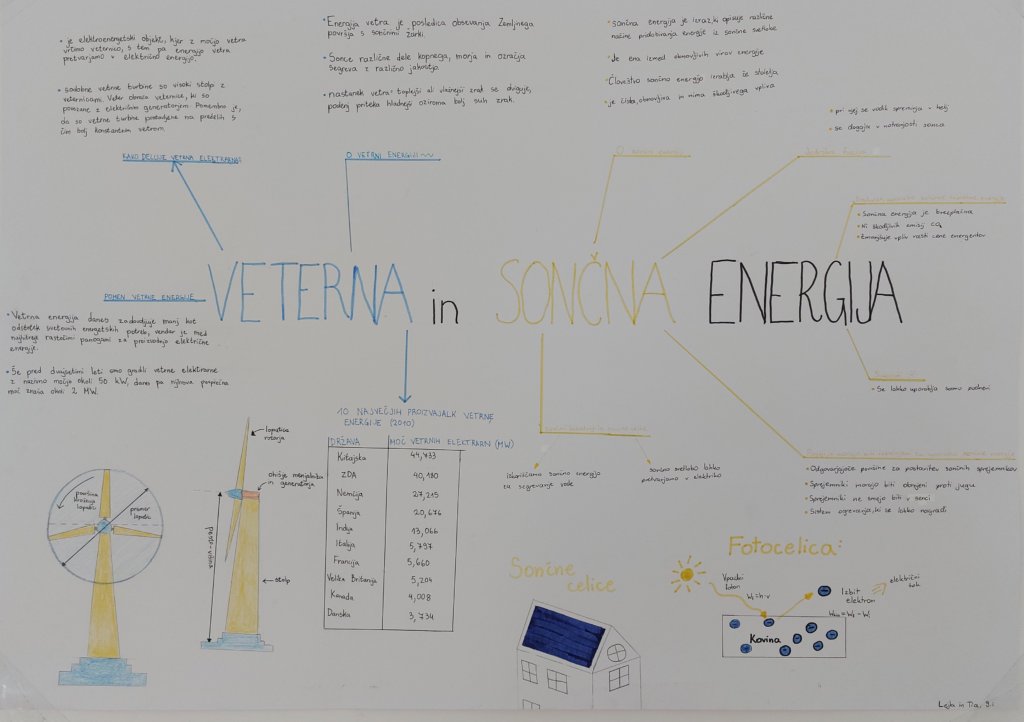 • je elektroenergetski objekt, kjer z močjo vetra
vrtimo veternico, s tem pa energijo vetra
pretvarjamo v električno energijo.
• sodobne vetrne turbine so visoki stolp z
veternicami. Veter obrača veternice, ki so
povezane z električnim generatorjem. Pomembno je,
da so vetrne turbine postavljene na predelih s
čim bolj konstantnim vetrom.
KAKO DELUJE VETRNA ELEKTRARNA?
• Energija vetra je posledica obsevanja Zemljinega
površja s sončnimi žarki.
• Sonce različne dele kopnega, morja in ozračja
segreva z različno jakostjo.
• nastanek vetra: toplejši ali vlažnejši zrak se dviguje,
podenj priteka hladnejši oziroma bolj suh zrak.
O VETRNI ENERGIJI
• sončna energija je izraz, ki opisuje različne
načine pridobivanja energije iz sončne svetlobe
• Je ena izmed obnovljivih virov energije
• Človeštvo sončno energijo izrablja že stoletja
• je čista, obnovljiva in nima škodljivega vpliva
• pri njej se vodik spreminja v helij
• se dogaja v notranjosti sonca
• Sončna energija je brezplačna
• Ni škodljivih emisij CO₂
• Zmanjšuje vpliv rasti cene energentov
VETERNA in SONČNA ENERGIJA
POMEN VETRNE ENERGIJE
• Vetrna energija danes zadovoljuje manj kot
odstotek svetovnih energetskih potreb, vendar je med
najhitreje rastočimi panogami za proizvodnjo električne
energije.
• Še pred dvajsetimi leti smo gradili vetrne elektrarne
z nazivno močjo okoli 50 kW, danes pa njihova povprečna
moč znaša okoli 2 MW.
• Se lahko uporablja samo podnevi
10 NAJVEČJIH PROIZVAJALK VETRNE
ENERGIJE (2010)
DRŽAVA MOČ VETRNIH ELEKTRARN (MW)
Kitajska 44,733
ZDA 40,180
Nemčija 27,215
Španija 20,676
Indija 13,066
Italija 5,797
Francija 5,660
Velika Britanija 5,204
Kanada 4,008
Danska 3,734
izkoriščamo sončno energijo
za segrevanje vode
sončno svetlobo lahko
pretvarjamo v elektriko
• Odgovarjajoče površine za postavitev sončnih sprejemnikov
• Sprejemniki morajo biti obrnjeni proti jugu
• Sprejemniki ne smejo biti v senci
• Sistem ogrevanja, ki se lahko nagradi
površina
kroženja
lopatic
premer
lopatic
lopatica
rotorja
ohišje menjalnika
in generatorja
stolp
Sončne
celice
Fotocelica:
Vpadni
foton
Izbit
elektron
električni
tok
Kovina
Lejla in Tia, 9.c